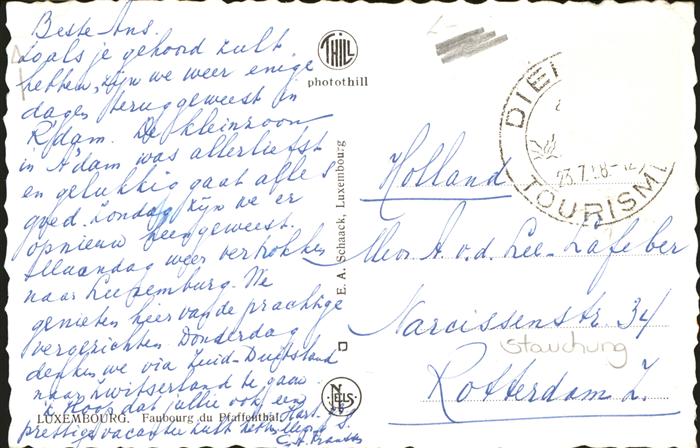 Beste Ans.
Zoals je gehoord zult
hebben, zijn we weer enige
dagen teruggeweest in
R'dam. De kleinzoon
in A'dam was allerliefst
en gelukkig gaat alles
goed. Zondag zijn we er
opnieuw heengeweest.
Maandag weer vertrokken
naar Luxemburg. We
genieten hier van de prachtige
vergezichten. Donderdag
denken we via Zuid-Duitsland
naar Zwitserland te gaan.
'k Hoop dat jullie ook een
prettige vacantie zult hebben. Hart. gr.
THILL
photothill
E. A. Schaack, Luxembourg
NELS
LUXEMBOURG. Faubourg du Pfaffenthal.
DIEK
23.7.58-12
TOURISM
Holland
Mevr. A. v. d. Lee-Lafeber
Narcissenstr. 34
Stauchung
Rotterdam Z.